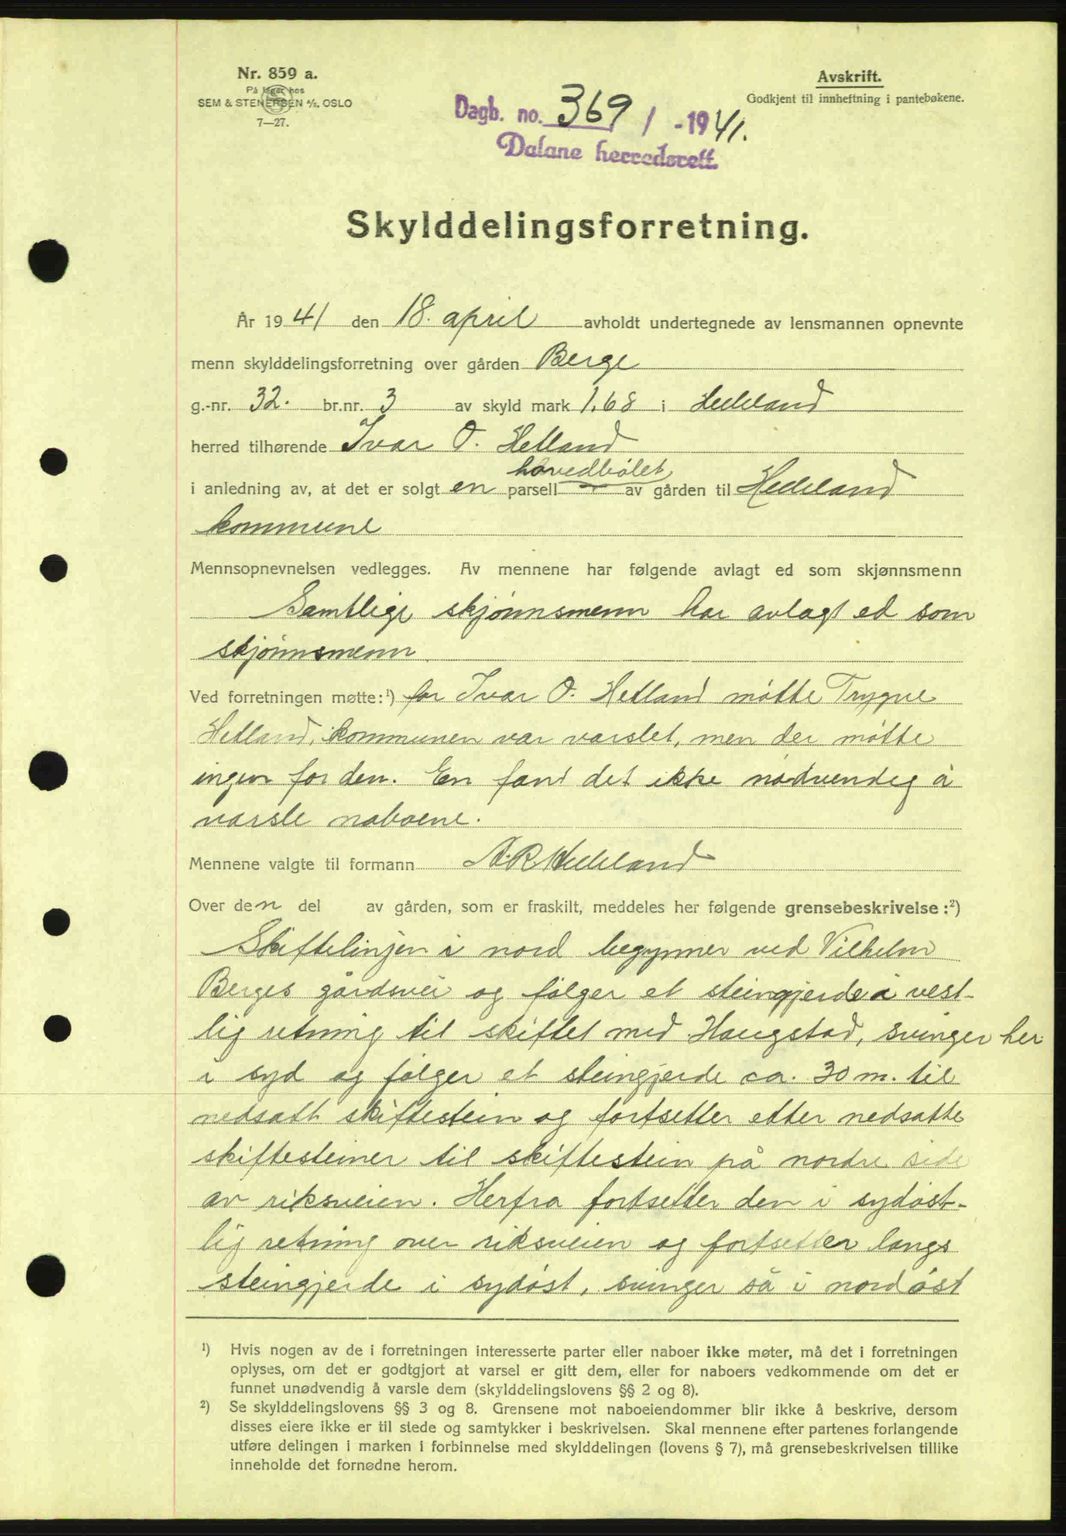 Nr. 859 a.
På lager hos
SEM & STENERSEN A/S, OSLO
7—27.
Avskrift.
Godkjent til innheftning i pantebøkene.
Dagb. no. 369 / -1941.
Dalane herredsrett
Skylddelingsforretning.
År 1941 den 18. april avholdt undertegnede av lensmannen opnevnte
menn skylddelingsforretning over gården Berge
g.-nr. 32. br.nr. 3 av skyld mark 1,68 i Helleland
herred tilhørende Ivar O. Hetland
hovedbølet
i anledning av, at det er solgt en parsell av gården til Helleland
kommune
Mennsopnevnelsen vedlegges. Av mennene har følgende avlagt ed som skjønnsmenn
Samtlige skjønnsmenn har avlagt ed som
skjønnsmenn.
Ved forretningen møtte:¹) for Ivar O. Hetland møtte Trygve
Hetland, kommunen var varslet, men der møtte
ingen for den. En fant det ikke nødvendig å
varsle naboene.
Mennene valgte til formann A. R. Helleland
Over den del av gården, som er fraskilt, meddeles her følgende grensebeskrivelse:²)
Skiftelinjen i nord begynner ved Vilhelm
Berges gårdsvei og følger et steingjerde i vest-
lig retning til skiftet med Haugstad, svinger her
i syd og følger et steingjerde ca. 30 m. til
nedsatt skiftestein og fortsetter etter nedsatte
skiftesteiner til skiftestein på nordre side
av riksveien. Herfra fortsetter den i sydøst-
lig retning over riksveien og fortsetter langs
steingjerde i sydøst, svinger så i nordøst
¹) Hvis nogen av de i forretningen interesserte parter eller naboer ikke møter, må det i forretningen
oplyses, om det er godtgjort at varsel er gitt dem, eller for naboers vedkommende om det er
funnet unødvendig å varsle dem (skylddelingslovens §§ 2 og 8).
²) Se skylddelingslovens §§ 3 og 8. Grensene mot naboeiendommer blir ikke å beskrive, dersom
disses eiere ikke er til stede og samtykker i beskrivelsen. Skal mennene efter partenes forlangende
utføre delingen i marken i forbinnelse med skylddelingen (lovens § 7), må grensebeskrivelsen tillike
inneholde det fornødne herom.